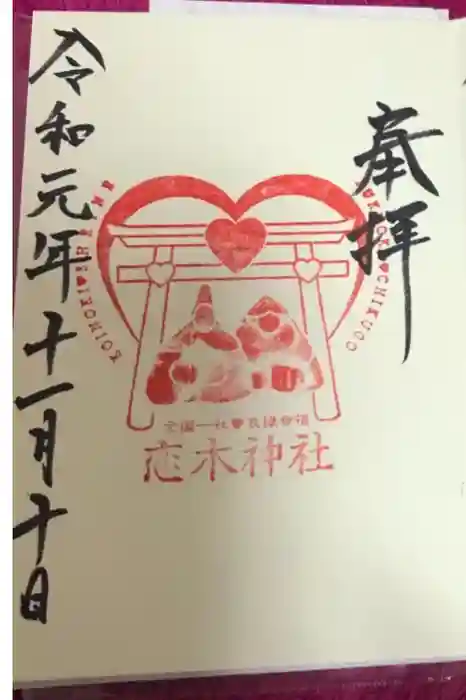 奉拝
KOINOKI♥JINJA
FUKUOKA♥CHIKUGO
全国一社♥良縁幸福
恋木神社
令和元年十一月十日